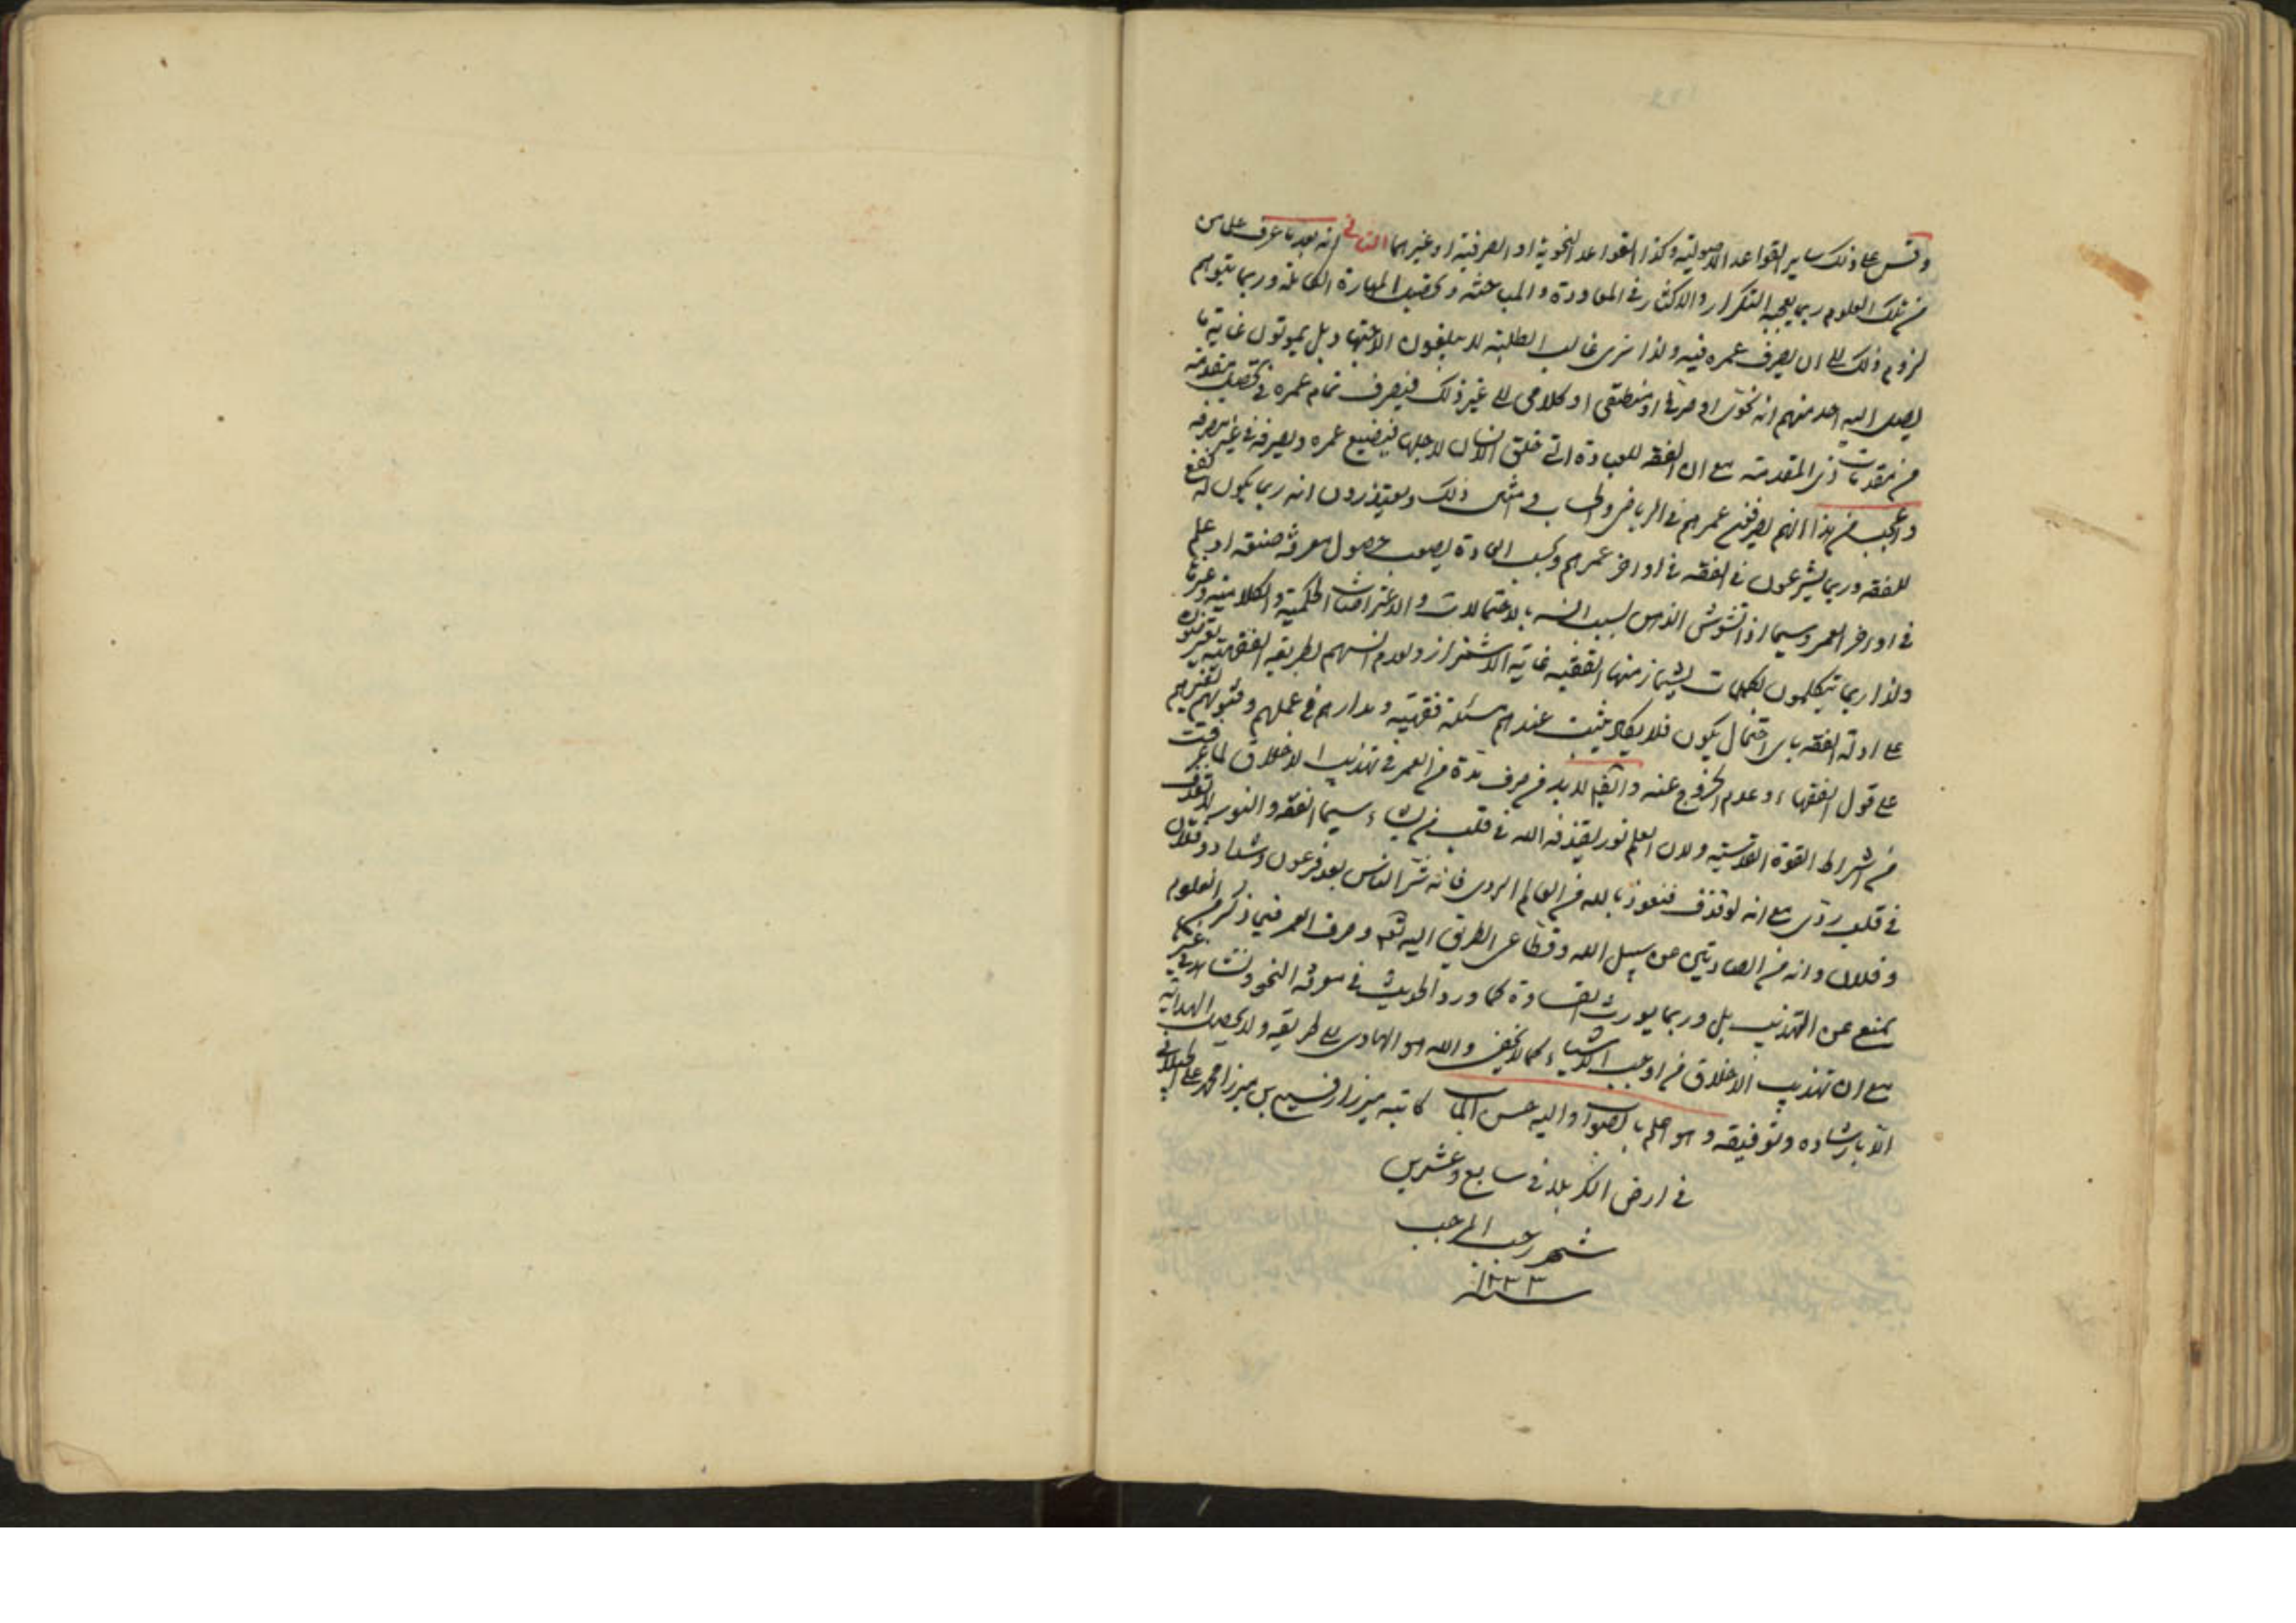 وقس على ذلك ساير القواعد الاصولية وكذا القواعد النحوية او الصرفية او غيرهما الثانى انه بعد ما عرف على من
من تلك العلوم ربما يعجبه التكرار والاكثار فى المعاودة والمباحثه وتحصيل المهارة الكاملة وربما يتوهم
لزوم ذلك الى ان يصرف عمره فيه ولذا نرى غالب الطلبة لا يبلغون الاجتهاد بل يموتون غاية ما
يصل اليه احد منهم انه نحوى او صرفى او منطقى او كلامى الى غير ذلك فيصرف تمام عمره فى تحصيل مقدمة
من مقدمات ذى المقدمة مع ان الفقه للعبادة التى خلق الانسان لاجلها فيضيع عمره ويصرفه فى غير مصرفه
واعجب من هذا انهم يصرفون عمرهم فى الرياضى والحساب وامثال ذلك ويعتذرون انه ربما يكون له نفع
للفقه وربما يشرعون فى الفقه فى اواخر عمرهم وبحسب العادة يصعب حصول معرفة صنعة او علم
فى اواخر العمر وسيما اذا تشوش الذهن بسبب انسه بالاحتمالات والاعتراضات الحكمية والكلامية وغيرها
ولذا ربما يتكلمون بكلمات يشمئز منها الفقيه غاية الاشمئزاز ولعدم انسهم بطريقة الفقهية يعترضون
على ادلة الفقه باى احتمال يكون فلا يكاد يثبت عندهم مسئلة فقهية ومدارهم فى عملهم وفتويهم لغيرهم
على قول الفقهاء وعدم الخروج عنه وايضا لا بد من صرف مدة من العمر فى تهذيب الاخلاق لما عرفت
من اشراط القوة القدسية ولان العلم نور يقذفه الله فى قلب من يشاء سيما الفقه والنور لا يقذف
فى قلب ردى مع انه لو قذف فنعوذ بالله من العالم الردى فانه شر الناس بعد فرعون وشداد وفلان
وفلان وانه من الصادين عن سبيل الله وقطاعى الطريق اليه تعالى وصرف العمر فيما ذكر من العلوم
يمنع عن التهذيب بل وربما يورث القساوة كما ورد الحديث فى معرفة النحو ونشاهد فى غيره
مع ان تهذيب الاخلاق من اوجب الاشياء كما لا يخفى والله هو الهادى الى طريقه ولا يحصل الهداية
الا بارشاده وتوفيقه وهو اعلم بالصواب واليه حسن المآب كاتبه ميرزا بن ميرزا محمد على
فى ارض الكربلا فى سابع وعشرين
شهر رجب المرجب
سنه ١٢٣٣